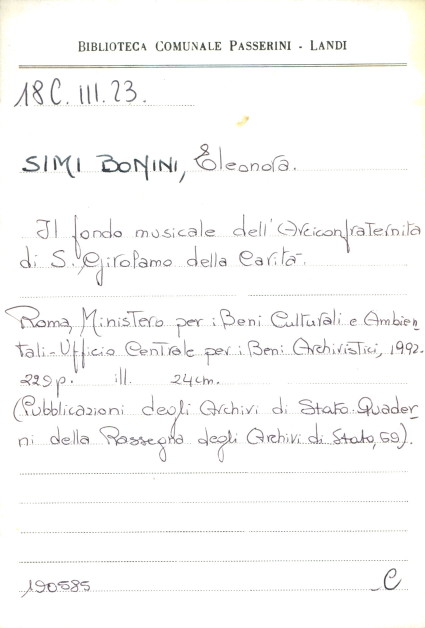 BIBLIOTECA COMUNALE PASSERINI - LANDI
18C. III. 23.
SIMI BONINI, Eleonora.
Il fondo musicale dell'Arciconfraternita
di S. Girolamo della Carità.
Roma, Ministero per i Beni Culturali e Ambien-
tali - Ufficio Centrale per i Beni Archivistici, 1992.
229p. ill. 24cm.
(Pubblicazioni degli Archivi di Stato. Quader-
ni della Rassegna degli Archivi di Stato, 69).
190585 C